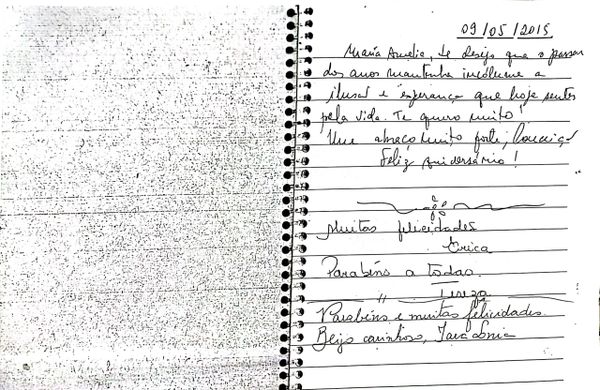 09/05/2015
Maria Amelia, te desejo que o passar
dos anos mantenha incólume a
ilusão e esperança que hoje sentes
pela vida. Te quero muito!
Um abraço muito forte,
Feliz aniversário!
Muitas felicidades
Erica
Parabéns a todas.
Tereza
Parabéns e muitas felicidades.
Beijo carinhoso, Iara Sonia